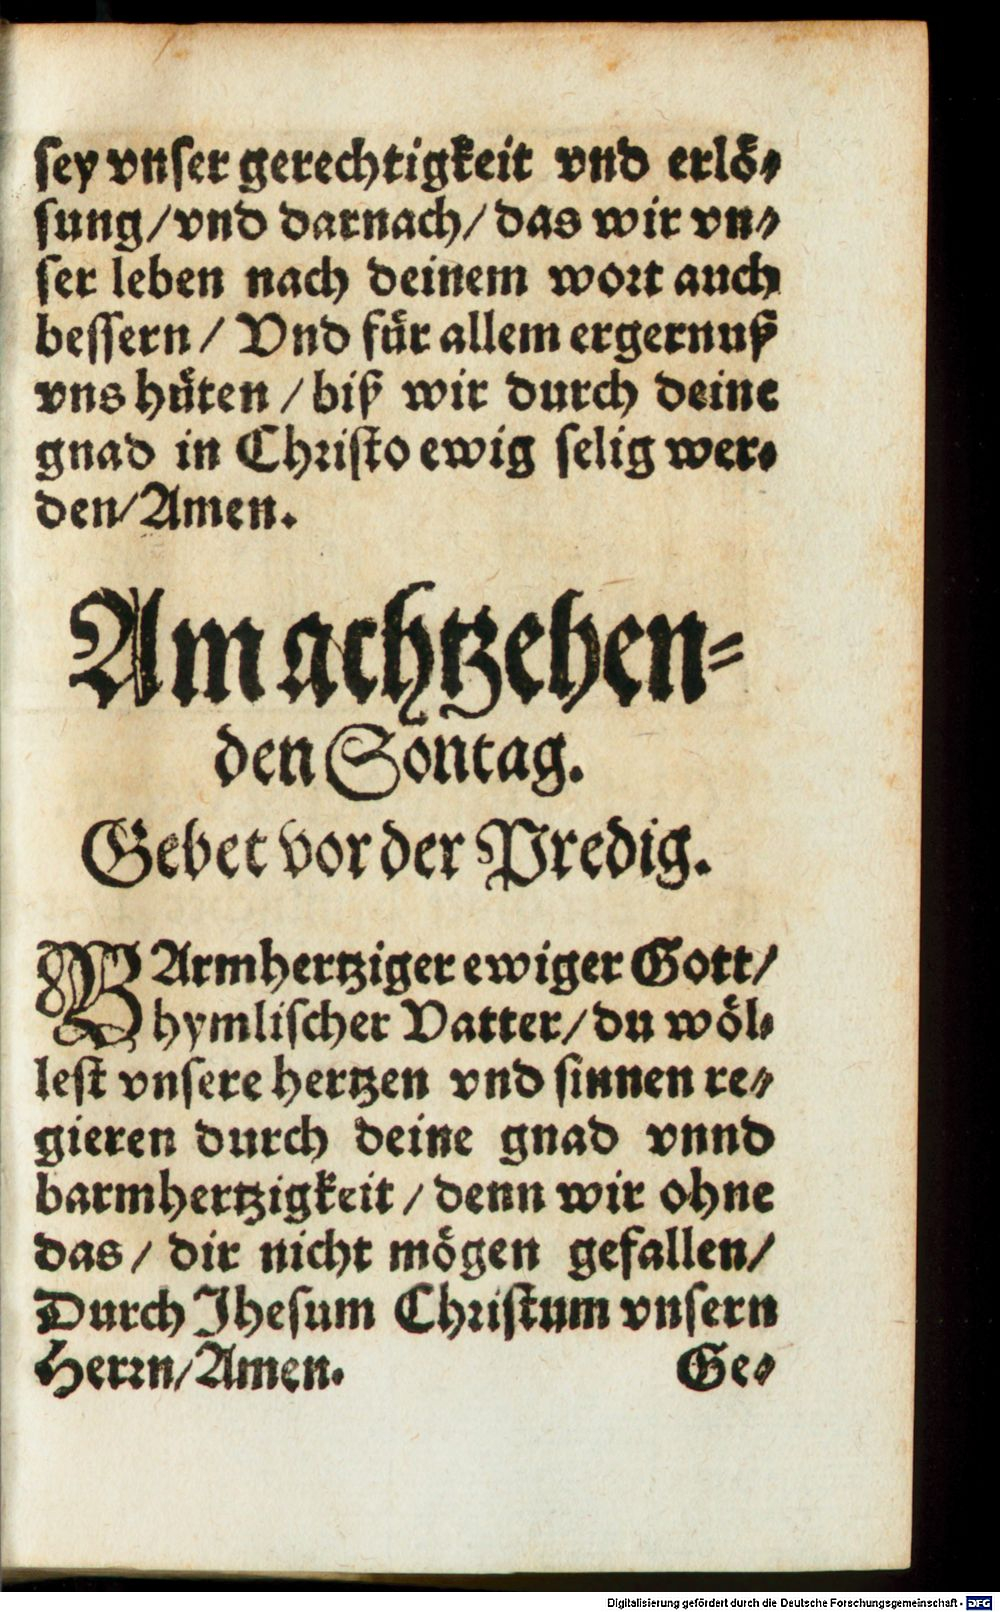 sey vnser gerechtigkeit vnd erlö⸗
sung/vnd darnach/das wir vn⸗
ser leben nach deinem wort auch
bessern/ Vnd für allem ergernuß
vns hüten/biß wir durch deine
gnad in Christo ewig selig wer⸗
den/Amen.
Am achtzehen⸗
den Sontag.
Gebet vor der Predig.
BArmhertziger ewiger Gott/
hymlischer Vatter/du wöl⸗
lest vnsere hertzen vnd sinnen re⸗
gieren durch deine gnad vnnd
barmhertzigkeit/denn wir ohne
das/ dir nicht mögen gefallen/
Durch Jhesum Christum vnsern
Herrn/Amen.
Ge⸗
Digitalisierung gefördert durch die Deutsche Forschungsgemeinschaft - DFG